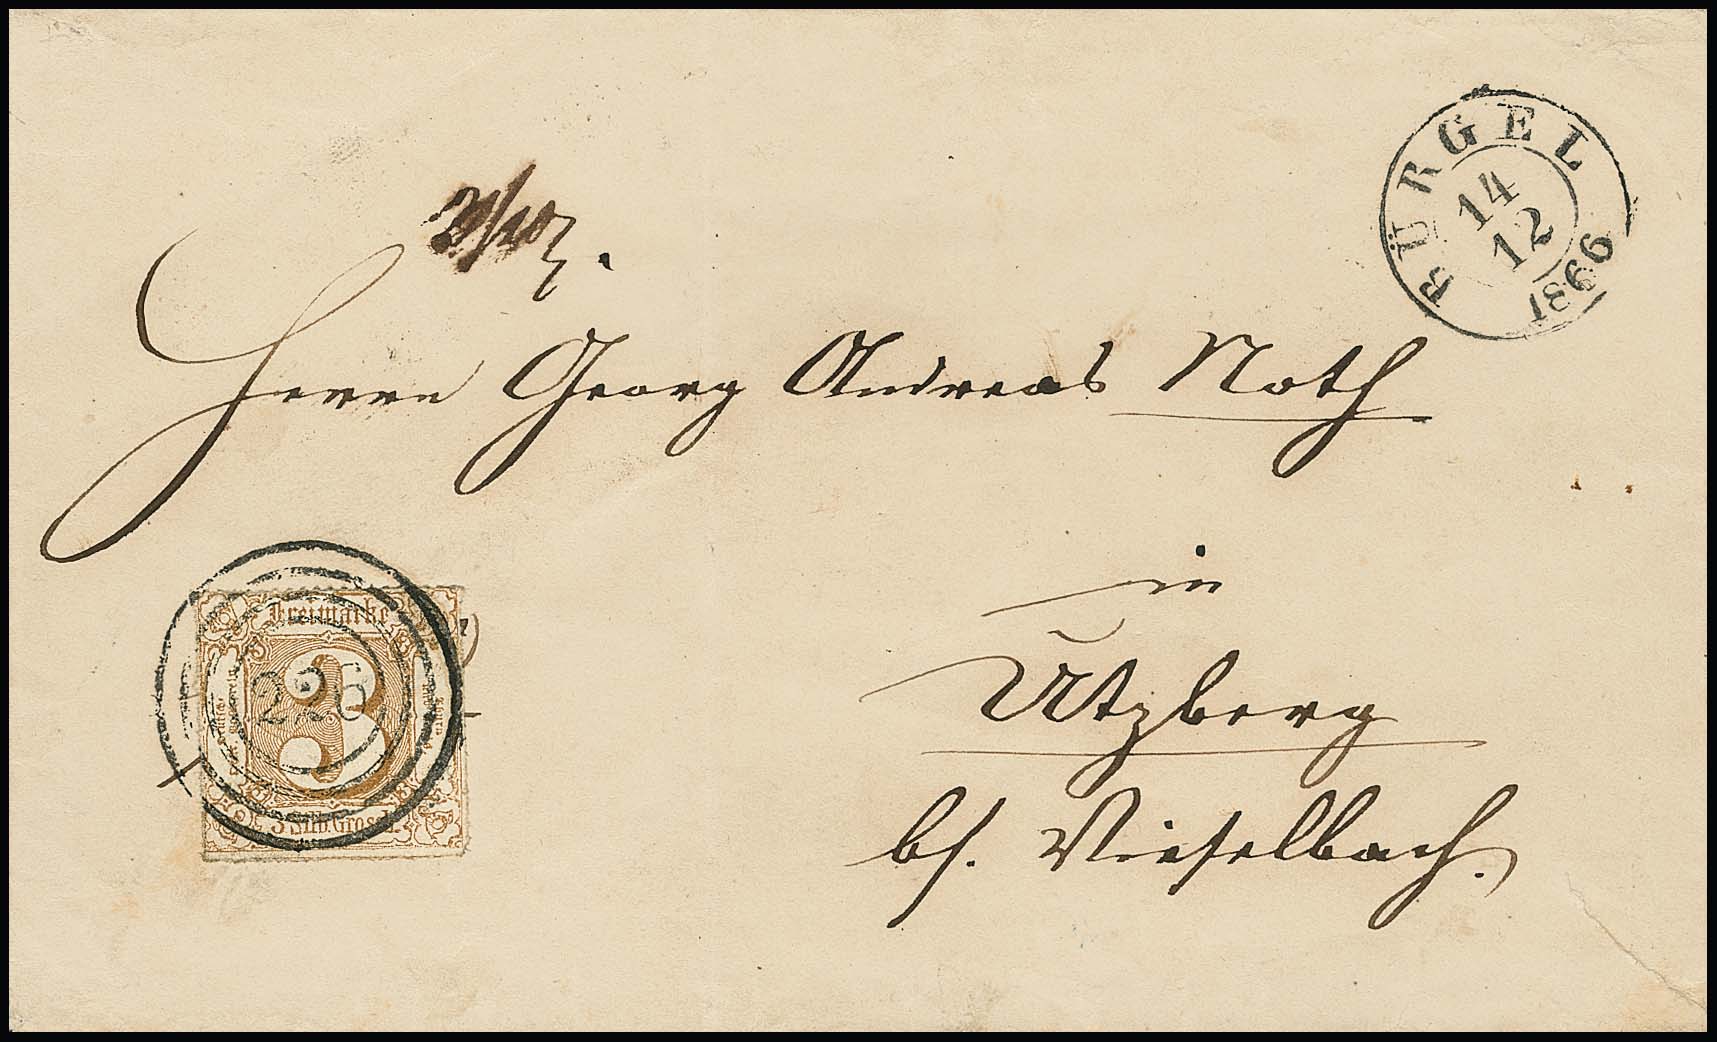 BÜRGEL
14
12
1866
Herrn Georg Andreas Noth
in
Utzberg
bs. Vieselbach.
Freimarke
3
226
3 Silb. Grosch.